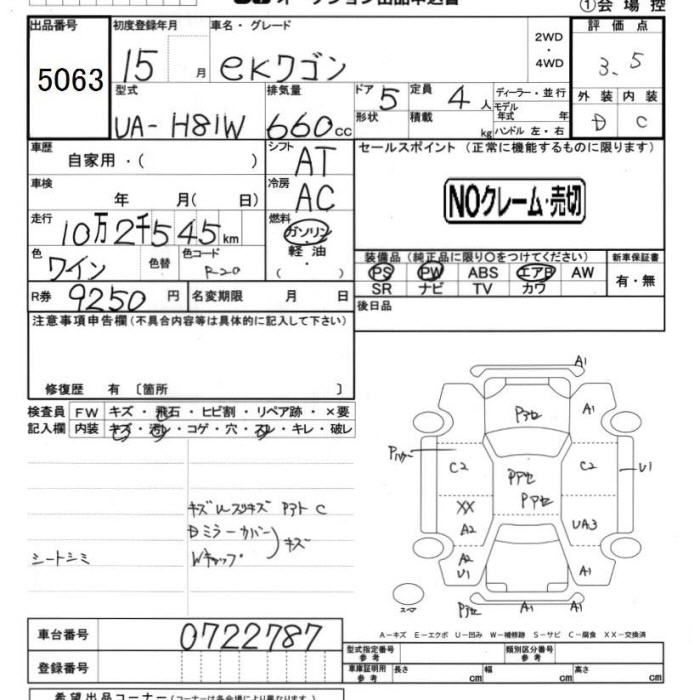 ①会場控
出品番号
5063
初度登録年月
15 月
車名・グレード
eKワゴン
2WD
・
4WD
評価点
3.5
外装 内装
D C
型式
UA-H81W
排気量
660cc
ドア 5
定員 4人
形状
積載 kg
ディーラー・並行
モデル年式 年
ハンドル 左・右
車歴
自家用・( )
シフト
AT
セールスポイント (正常に機能するものに限ります)
NOクレーム・売切
車検
年 月( 日)
冷房
AC
走行
10万2千545km
燃料
ガソリン
・
軽油
・
( )
色
ワイン
色替
色コード
R20
装備品 (純正品に限り○をつけてください)
PS PW ABS エアB AW
SR ナビ TV カワ
新車保証書
有・無
R券 9250円
名変期限 月 日
後日品
注意事項申告欄 (不具合内容等は具体的に記入して下さい)
修復歴 有 〔箇所 〕
検査員
記入欄
FW キズ・飛石・ヒビ割・リペア跡・×要
内装 キズ・汚レ・コゲ・穴・スレ・キレ・破レ
シートシミ
Dミラーカバー
Wキャップ
キズ
A1
A1
C2
C2
U1
XX
A2
UA3
A2
U1
A1
A1
A1
A-キズ E-エクボ U-凹み W-補修跡 S-サビ C-腐食 XX-交換済
車台番号
0722787
登録番号
型式指定番号
参考
類別区分番号
参考
車庫証明用
参考
長さ cm
幅 cm
高さ cm
希望出品コーナー (コーナーは各会場により異なります)